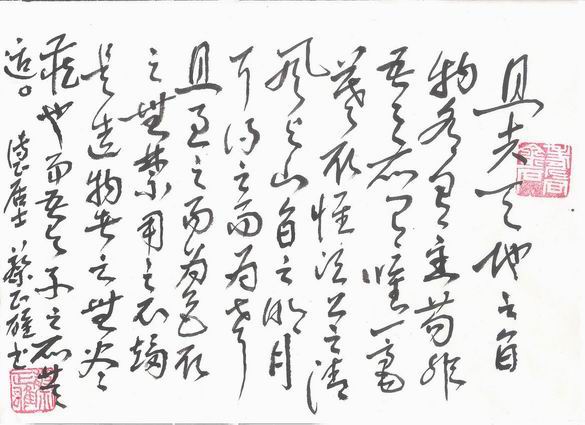 且夫天地之間
物各有主苟非
吾之所有雖一毫
莫取惟江上之清
風與山間之明月
耳得之而為聲
目遇之而為色取
之無禁用之不竭
是造物者之無盡
藏也而吾與子之所共
適。 居士 蔡正雄書